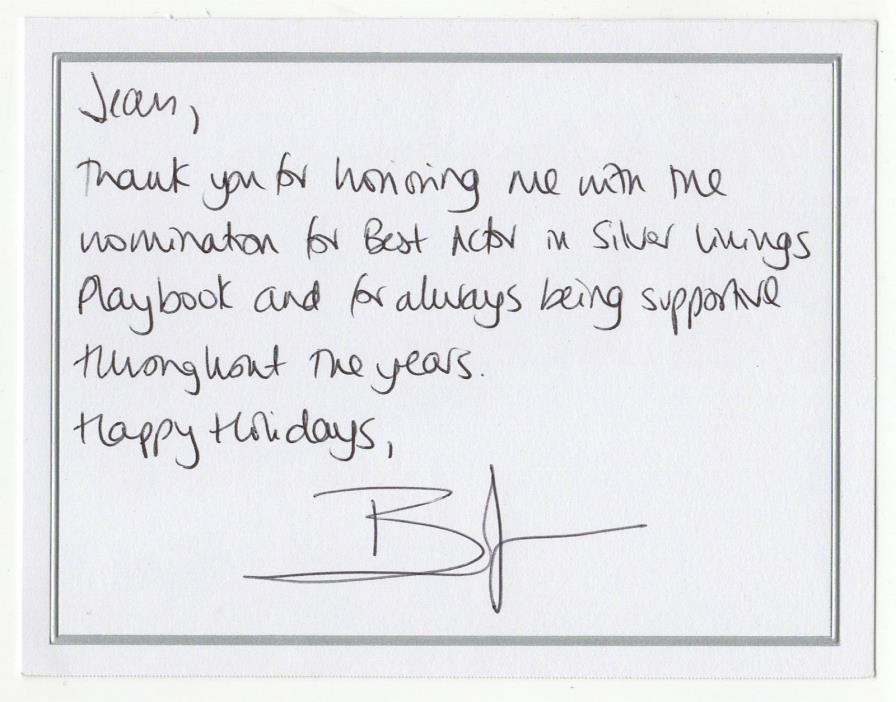 Jean,
Thank you for honoring me with the
nomination for Best Actor in Silver Linings
Playbook and for always being supportive
throughout the years.
Happy Holidays,